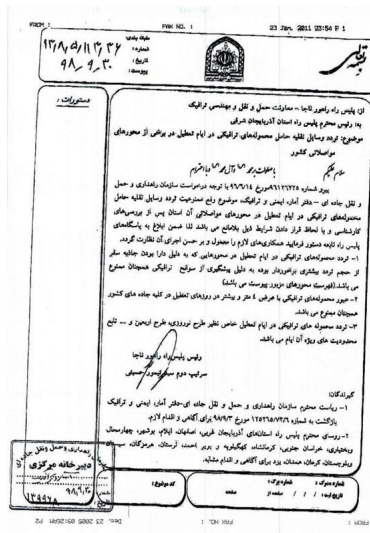 FROM :
FAX NO. :
23 Jan. 2011 03:54 P 1
طبقه بندی:
شماره:
تاریخ: ۹۸,۹,۳۰
پیوست:
دستورات:
از: پلیس راه راهور ناجا – معاونت حمل و نقل و مهندسی ترافیک
به: رئیس محترم پلیس راه استان آذربایجان شرقی
موضوع: تردد وسایل نقلیه حامل محموله‌های ترافیکی در ایام تعطیل در برخی از محورهای
مواصلاتی کشور
سلام علیکم
با صلوات بر محمد و آل محمد و با احترام
پیرو شماره ۹۶۱۲۶۲۲۵ مورخ ۹۶/۷/۱۵ با توجه درخواست سازمان راهداری و حمل
و نقل جاده ای – دفتر آمار، ایمنی و ترافیک، موضوع رفع ممنوعیت تردد وسایل نقلیه حامل
محموله‌های ترافیکی در ایام تعطیل در محورهای مواصلاتی آن استان پس از بررسی‌های
کارشناسی و با لحاظ قرار دادن شرایط ذیل بلامانع می باشد لذا ضمن ابلاغ به پاسگاه‌های
پلیس راه تابعه دستور فرمایید همکاری‌های لازم را معمول و بر حسن اجرای آن نظارت گردد.
۱- تردد محموله‌های ترافیکی در ایام تعطیل در محورهایی که به دلیل دارا بودن جاذبه سفر
از حجم تردد بیشتری برخوردار بوده به دلیل پیشگیری از سوانح ترافیکی همچنان ممنوع
می باشد.(فهرست محورهای مزبور پیوست می باشد)
۲- عبور محموله‌های ترافیکی با عرض ۴ متر و بیشتر در روزهای تعطیل در کلیه جاده های کشور
همچنان ممنوع می باشد.
۳- تردد محموله های ترافیکی در ایام تعطیل خاص نظیر طرح نوروزی، طرح اربعین و ... تابع
محدودیت های ویژه آن ایام می باشد.
رئیس پلیس راه راهور ناجا
سرتیپ دوم سید تیمور حسینی
گیرندگان:
۱- ریاست محترم سازمان راهداری و حمل و نقل جاده ای-دفتر آمار، ایمنی و ترافیک
بازگشت به شماره مورخ ۹۸/۹/۳ برای آگاهی و اقدام لازم.
۲- روسای محترم پلیس راه استان‌های آذربایجان غربی، اصفهان، ایلام، بوشهر، چهارمحال
وبختیاری، خراسان جنوبی، کرمانشاه، کهگیلویه و بویر احمد، لرستان، هرمزگان، سیستان
وبلوچستان، کرمان، همدان، یزد برای آگاهی و اقدام مشابه.
راهداری و حمل ونقل جاده ای
دبیرخانه مرکزی
۹۸,۹,۳۰
۱۳۹۹۶۸
کد موضوع:
شماره برگ:
صفحه از صفحه
شماره مدرک:
تاریخ ثبت: / / /
FROM :
FAX NO. :
Dec. 23 2005 09:26AM P2